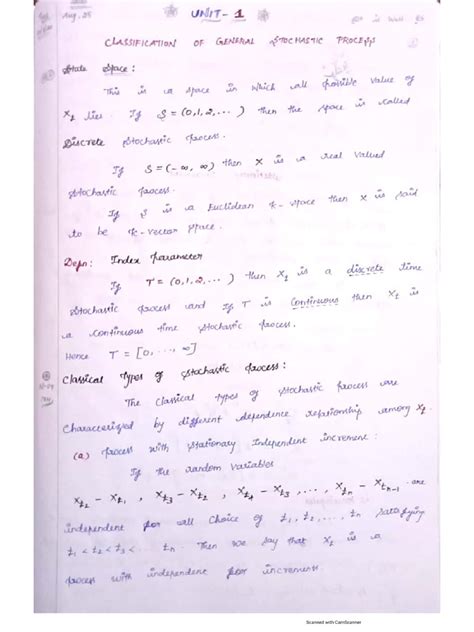 Aug, 25
UNIT - 1
CLASSIFICATION OF GENERAL STOCHASTIC PROCESS
State Space:
This is a space in which all possible value of
X_t lies. If S = (0, 1, 2, ...) then the space is called
Discrete Stochastic process.
If S = (-∞, ∞) then X is a real valued
stochastic process.
If S is a Euclidean k-space then X is said
to be k-vector space.
Defn: Index parameter
If T = (0, 1, 2, ...) then X_t is a discrete time
stochastic process and If T is continuous then X_t is
a continuous time stochastic process.
Hence T = [0, ..., ∞]
Classical Types of Stochastic process:
The classical types of stochastic process are
Characterized by different dependence relationship among X_t
(a) process with Stationary Independent increment:
If the random variables
X_t₂ - X_t₁, X_t₃ - X_t₂, X_t₄ - X_t₃, ..., X_tₙ - X_tₙ₋₁ are
independent for all choice of t₁, t₂, ..., tₙ satisfying
t₁ < t₂ < t₃ < ... tₙ. Then we say that X_t is a
process with independent for increment.
Scanned with CamScanner